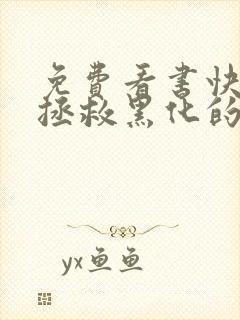 免费看书快
拯救黑化的
yx鱼鱼